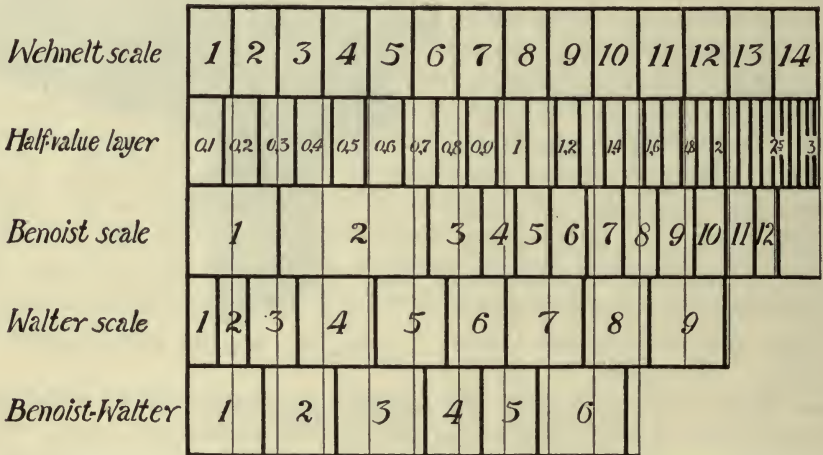 Wehnelt scale 1 2 3 4 5 6 7 8 9 10 11 12 13 14
Half value layer 0,1 0,2 0,3 0,4 0,5 0,6 0,7 0,8 0,9 1 1,2 1,4 1,6 1,8 2 2,5 3
Benoist scale 1 2 3 4 5 6 7 8 9 10 11 12
Walter scale 1 2 3 4 5 6 7 8 9
Benoist-Walter 1 2 3 4 5 6